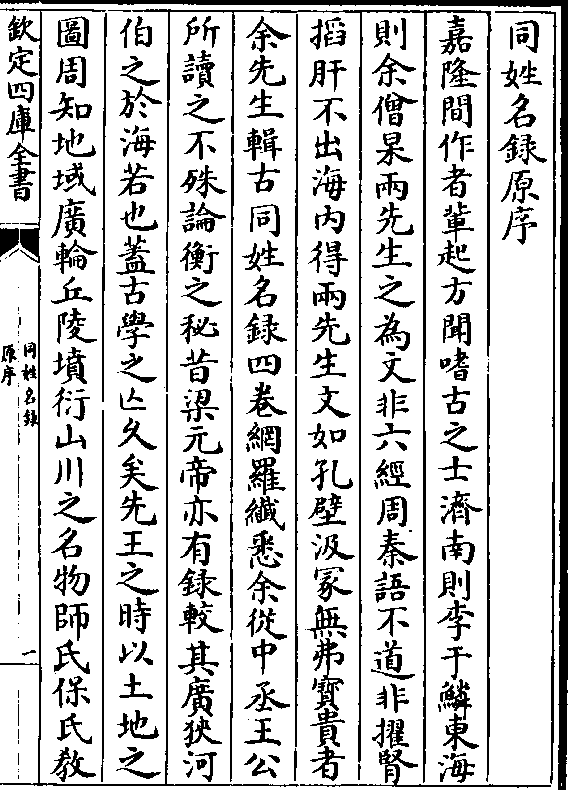 同姓名録原序
嘉隆間作者輩起方聞嗜古之士濟南則李于鱗東海
則余僧杲兩先生之為文非六經周秦語不道非擢腎
搯肝不出海内得兩先生文如孔壁汲冡無弗寶貴者
余先生輯古同姓名録四卷網羅纎悉余從中丞王公
所讀之不殊論衡之秘昔梁元帝亦有録較其廣狹河
伯之於海若也葢古學之亾久矣先王之時以土地之
圖周知地域廣輪丘陵墳衍山川之名物師氏保氏教
欽定四庫全書
同姓名録
原序
一